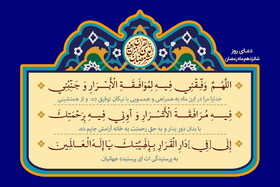 دعای روز
شانزدهم ماه رمضان
اللهُمَّ وَفِّقْنی فیهِ لِمُوافَقَةِ الْأَبْرارِ وَ جَنِّبْنی
خدایا مرا در این ماه به همراهی و همسویی با نیکان توفیق ده، و از همنشینی
فیهِ مُرافَقَةَ الْأَشْرارِ وَ آوِنی فیهِ بِرَحْمَتِکَ
با بدان دور بدار و به حق رحمتت به خانه آرامش جایم ده،
إِلی فی دارِ الْقَرارِ بِإِلهِیَّتِکَ یا إِلهَ الْعالَمینَ
به پرستیدگی ات ای پرستیده جهانیان